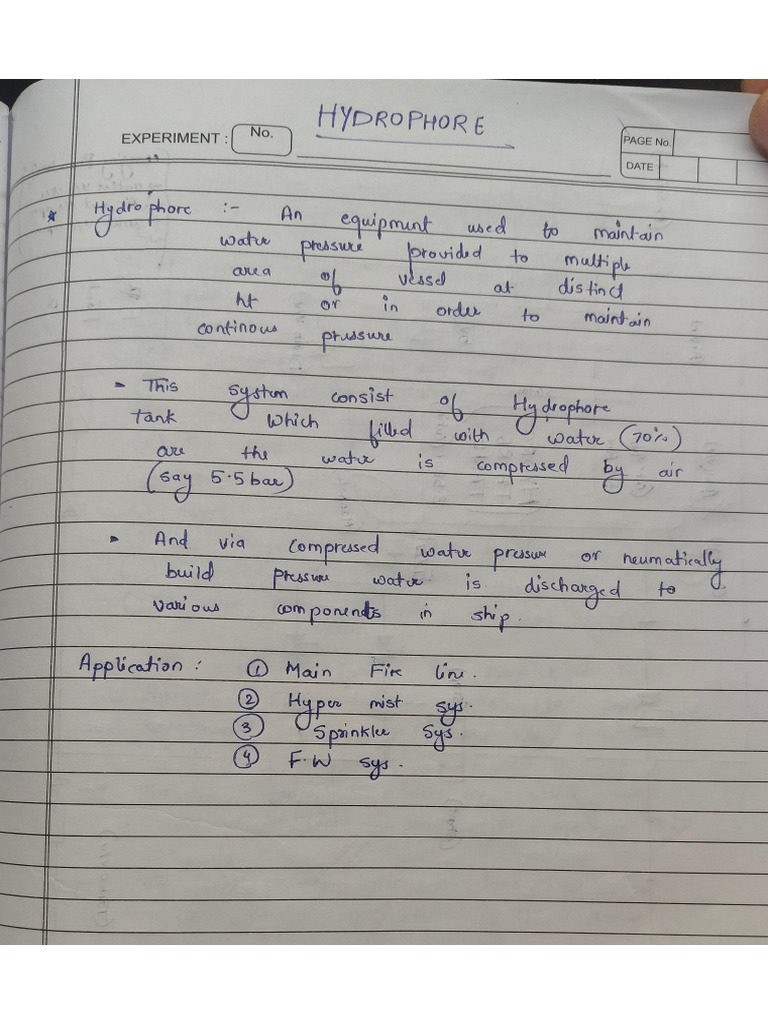 HYDROPHORE
EXPERIMENT : No.
PAGE No.
DATE
* Hydrophore :- An equipment used to maintain
water pressure provided to multiple
area of vessel at distinct
ht or in order to maintain
continous pressure
This system consist of Hydrophore
tank which filled with water (70%)
are the water is compressed by air
(say 5.5 bar)
And via compressed water pressure or neumatically
build pressure water is discharged to
various components in ship.
Application : ① Main Fire line.
② Hyper mist sys.
③ Sprinkler Sys.
④ F.W sys.